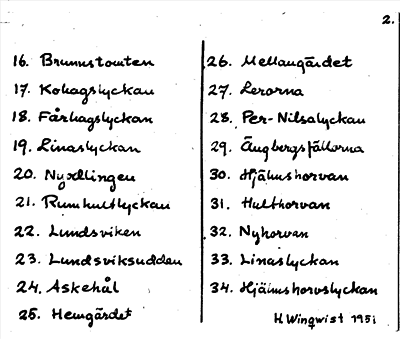 2.
16. Brunnstomten
17. Kohagslyckan
18. Fårhagslyckan
19. Linaslyckan
20. Nyodlingen
21. Rumhultlyckan
22. Lundsviken
23. Lundsviksudden
24. Askehål
25. Hemgärdet
26. Mellangärdet
27. Lerorna
28. Per-Nilsalyckan
29. Ängbergsfällorna
30. Hjälmshorvan
31. Hulthorvan
32. Nyhorvan
33. Linaslyckan
34. Hjälmshorvslyckan
H. Wingwist 1951